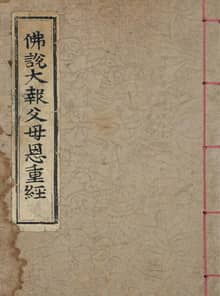 佛說大報父母恩重經